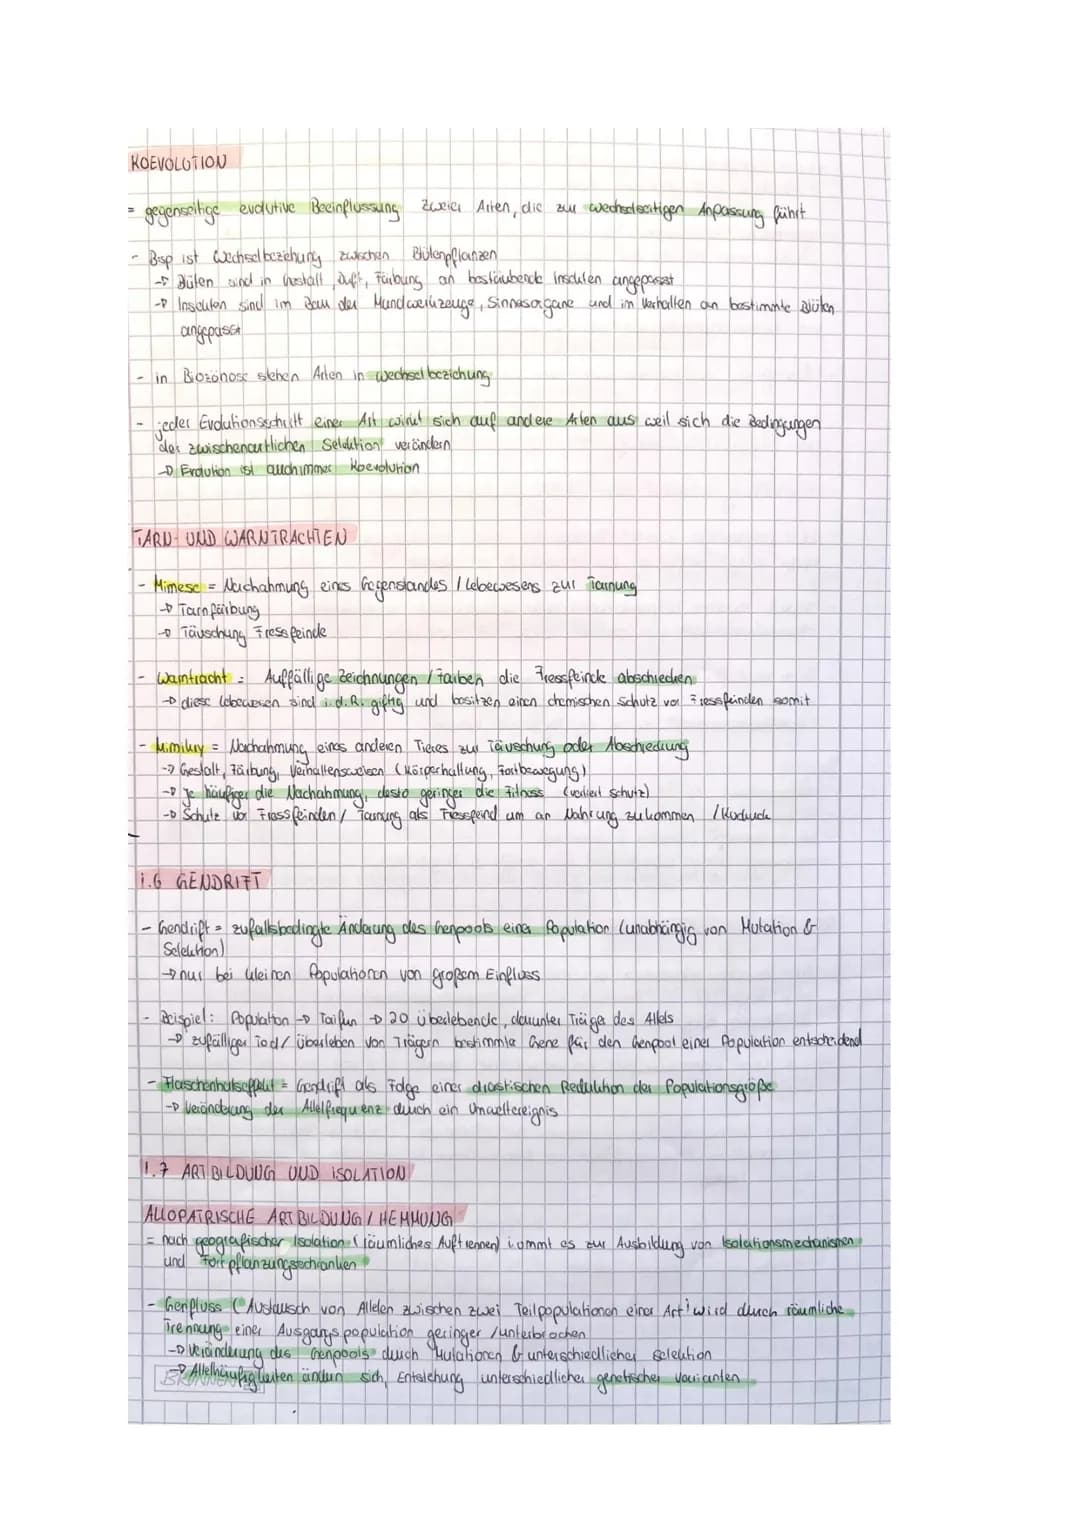 KOEVOLUTION
= gegenseitige evolutive Beeinflussung zweier Arten, die zur wechselseitigen Anpassung führt
- Bsp ist Wechselbeziehung zwischen Blütenpflanzen
→ Blüten sind in Gestalt, Duft, Färbung an bestäubende Insekten angepasst
→ Insekten sind im Bau der Mundwerkzeuge, Sinnesorgane und im Verhalten an bestimmte Blüten
angepasst
- in Biozönose stehen Arten in Wechselbeziehung
- jeder Evolutionsschritt einer Art wirkt sich auf andere Arten aus weil sich die Bedingungen
der zwischenartlichen Selektion verändern
→ Evolution ist auch immer Koevolution
TARN- UND WARNTRACHTEN
- Mimese = Nachahmung eines Gegenstandes / Lebewesens zur Tarnung
→ Tarnfärbung
→ Täuschung Fressfeinde
- Warntracht = Auffällige Zeichnungen / Farben die Fressfeinde abschrecken
→ diese Lebewesen sind i.d.R. giftig und besitzen einen chemischen Schutz vor Fressfeinden somit
- Mimikry = Nachahmung eines anderen Tieres zur Täuschung oder Abschreckung
→ Gestalt, Färbung, Verhaltensweisen (Körperhaltung, Fortbewegung)
→ je häufiger die Nachahmung, desto geringer die Fitness (verliert Schutz)
→ Schutz vor Fressfeinden / Tarnung als Fressfeind um an Nahrung zu kommen / Kuckuck
1.6 GENDRIFT
- Gendrift = zufallsbedingte Änderung des Genpools einer Population (unabhängig von Mutation &
Selektion)
→ nur bei kleinen Populationen von großem Einfluss
- Beispiel: Population → Taifun → 20 überlebende, darunter Träger des Allels
→ zufälliger Tod / überleben von Trägern bestimmte Gene für den Genpool einer Population entscheidend
- Flaschenhalseffekt = Gendrift als Folge einer drastischen Reduktion der Populationsgröße
→ Veränderung der Allelfrequenz durch ein Umweltereignis
1.7 ARTBILDUNG UND ISOLATION
ALLOPATRISCHE ARTBILDUNG / HEMMUNG
= nach geografischer Isolation (räumliches Auftrennen) kommt es zur Ausbildung von Isolationsmechanismen
und Fortpflanzungsschranken
- Genfluss (Austausch von Allelen zwischen zwei Teilpopulationen einer Art) wird durch räumliche
Trennung einer Ausgangspopulation geringer / unterbrochen
→ Veränderung des Genpools durch Mutationen & unterschiedlicher Selektion
→ Allelhäufigkeiten ändern sich, Entstehung unterschiedlicher genetischer Varianten